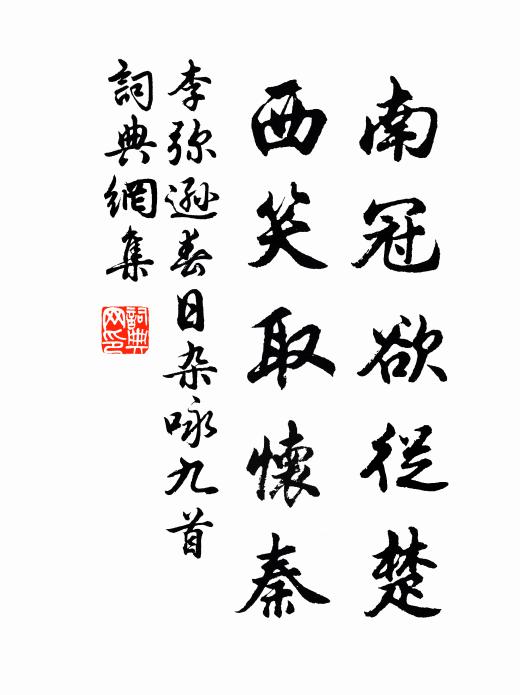 南冠欲從楚
西笑取懷秦
李弥遜春日杂咏九首
詞典網集
詞典网印